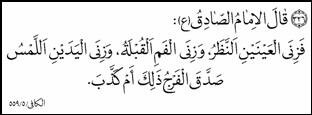 ٣٢٦ قَالَ الإِمَامُ الصَّادِقُ (ع):
فَزِنَى الْعَيْنَيْنِ اَلنَّظَرُ، وَزِنَى الْفَمِ اَلْقُبْلَةُ، وَزِنَى الْيَدَيْنِ اَللَّمْسُ
صَدَّقَ الْفَرْجُ ذَلِكَ أَمْ كَذَّبَ.
الكافي/٥/٥٥٩